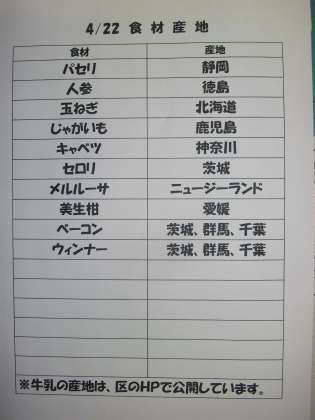 4/22 食材産地
食材 産地
パセリ 静岡
人参 徳島
玉ねぎ 北海道
じゃがいも 鹿児島
キャベツ 神奈川
セロリ 茨城
メルルーサ ニュージーランド
美生柑 愛媛
ベーコン 茨城、群馬、千葉
ウィンナー 茨城、群馬、千葉
※牛乳の産地は、区のHPで公開しています。